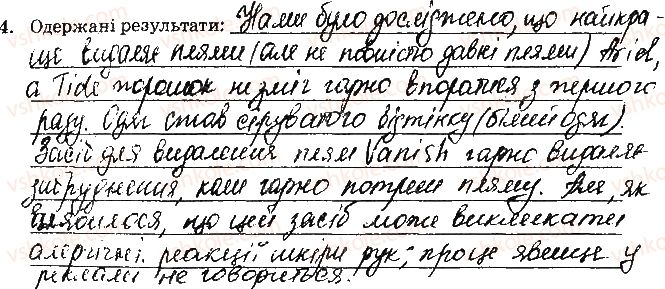 4. Одержані результати: Нами було досліджено, що найкра-
ще видаляє плями (але не повністю давні плями) Ariel,
а Tide порошок не зміг гарно впоратися з першого
разу. Одяг став сіруватого відтінку (білий одяг).
Засіб для видалення плям Vanish гарно видаляє
забруднення, коли гарно потрем пляму. Але, як
виявилося, що цей засіб може викликати
алергічні реакції шкіри рук; про це явище у
рекламі не говориться.